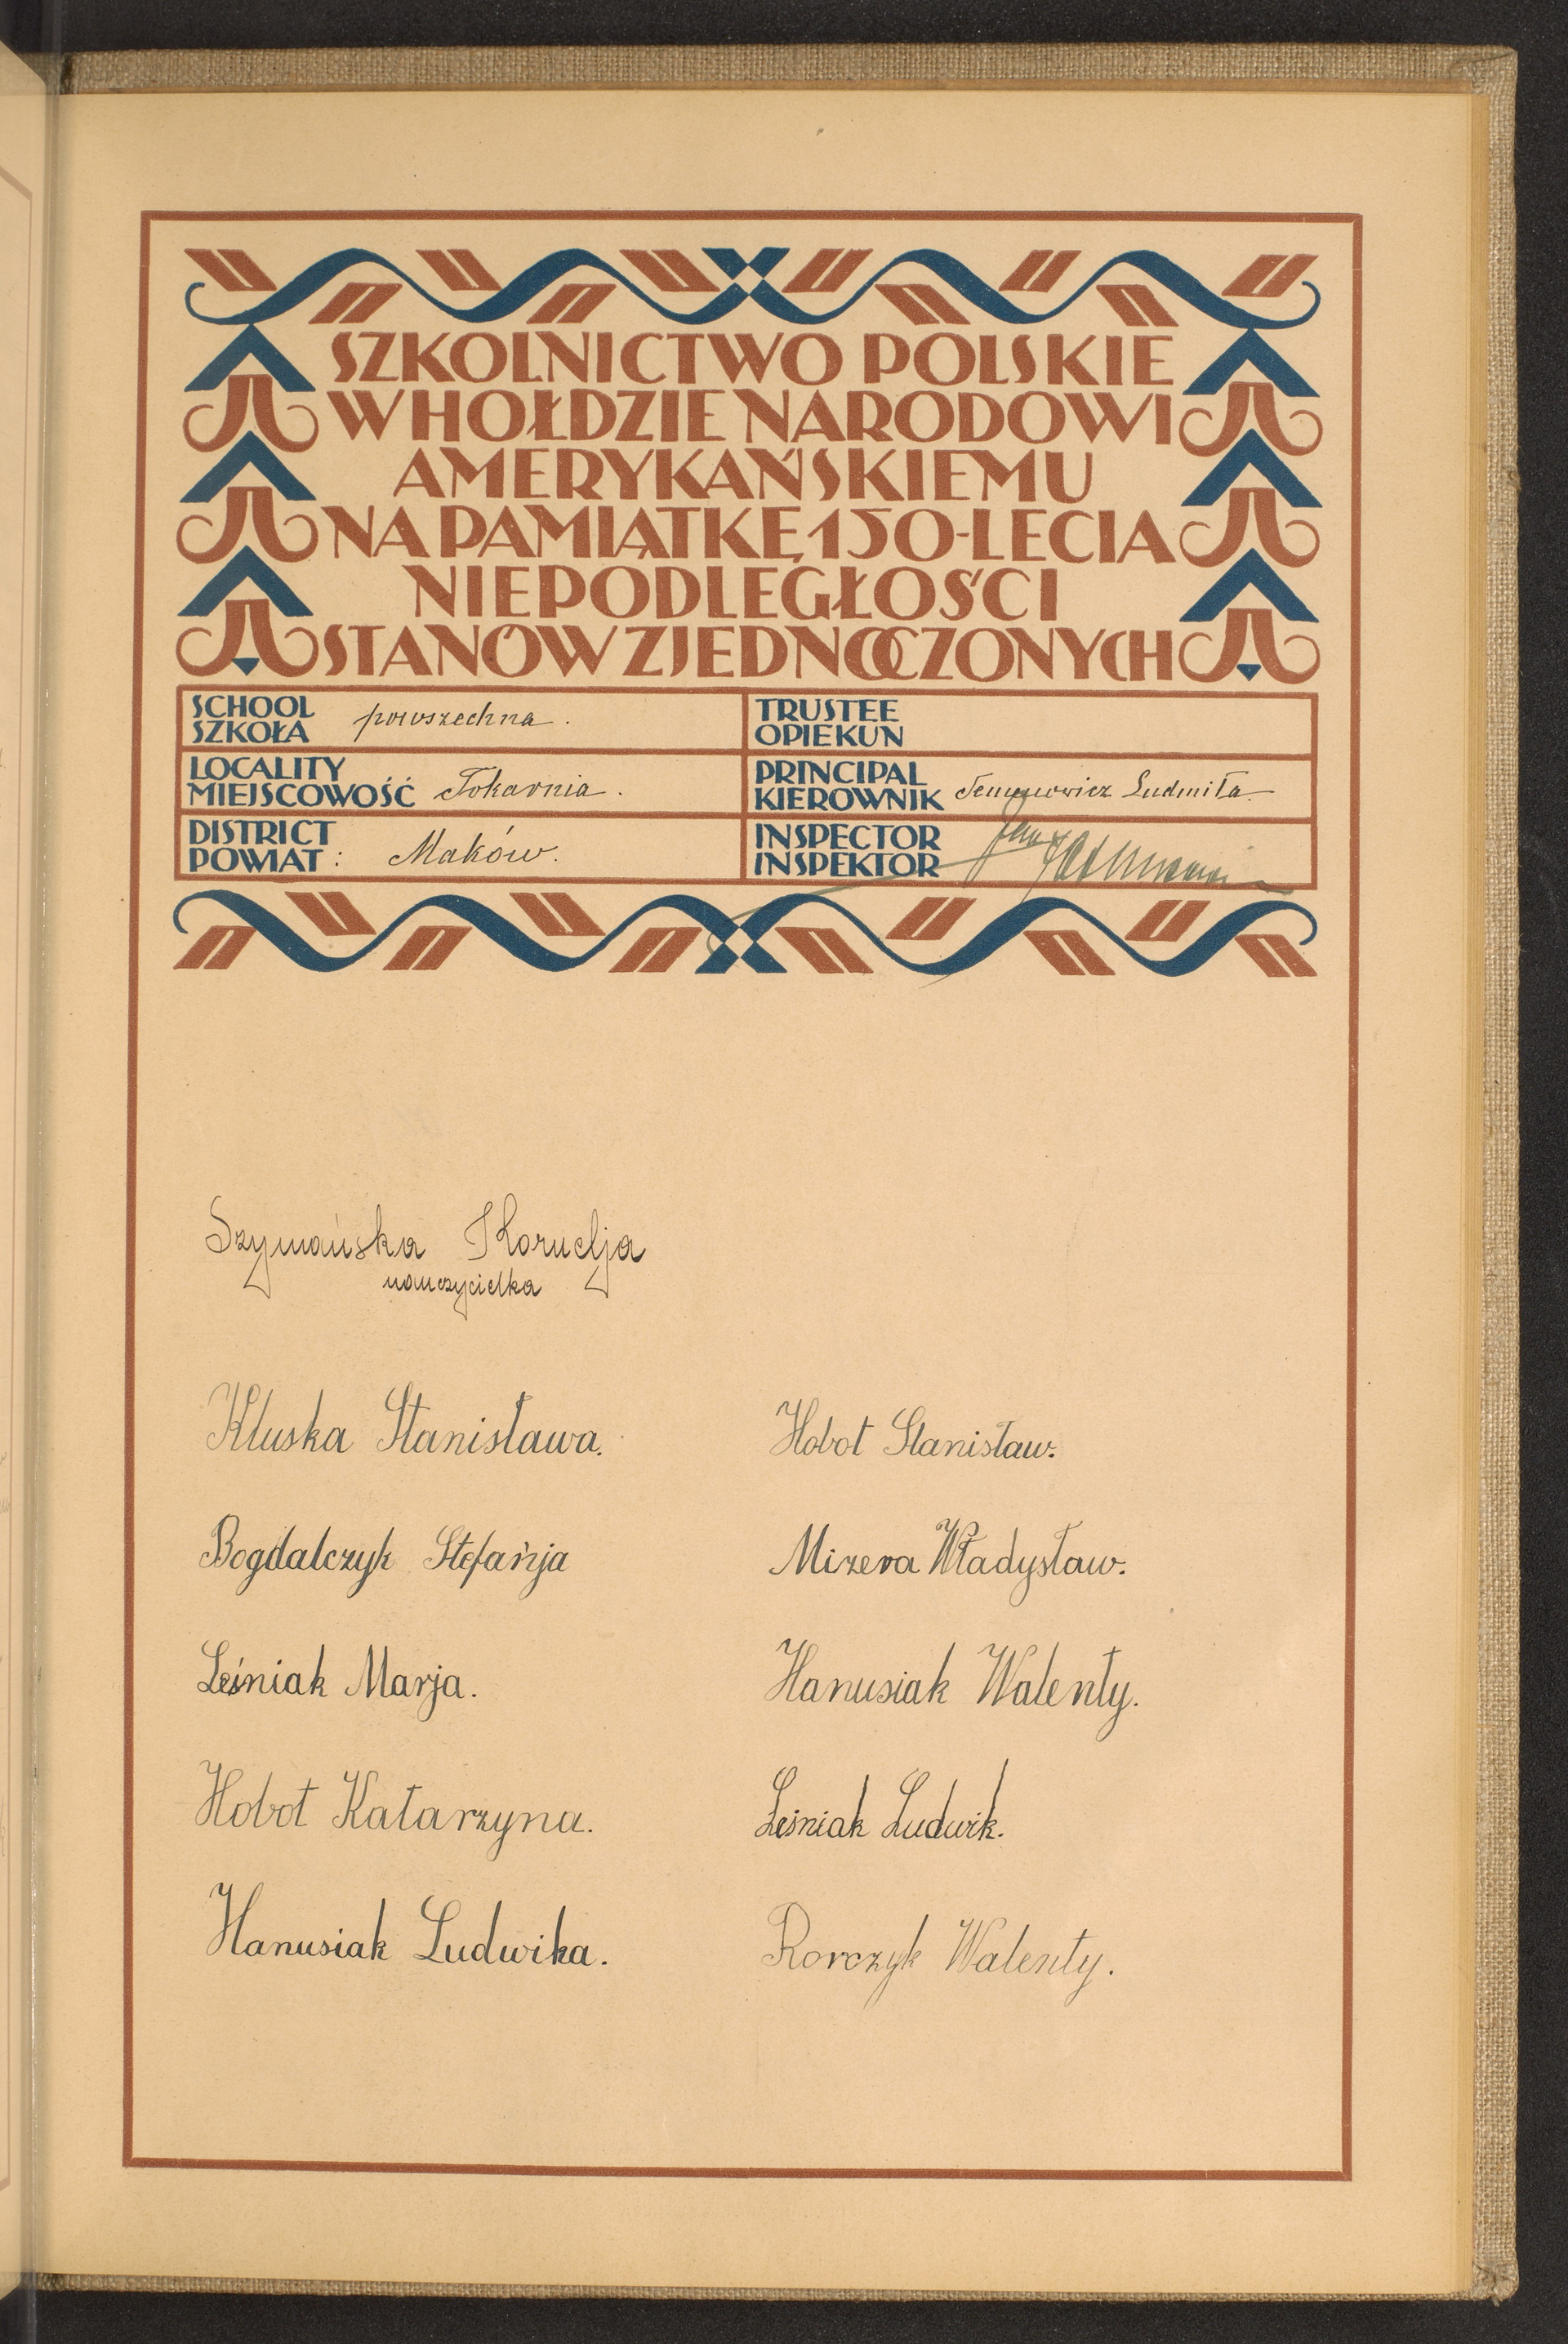 SZKOLNICTWO POLSKIE
W HOŁDZIE NARODOWI
AMERYKAŃSKIEMU
NA PAMIĄTKĘ 150-LECIA
NIEPODLEGŁOŚCI
STANÓW ZJEDNOCZONYCH
SCHOOL
SZKOŁA powszechna.
TRUSTEE
OPIEKUN
LOCALITY
MIEJSCOWOŚĆ Tokarnia.
PRINCIPAL
KIEROWNIK Ludmiła
DISTRICT
POWIAT: Maków.
INSPECTOR
INSPEKTOR Jan
Szymańska Kornelja
nauczycielka
Kluska Stanisława.
Bogdalczyk Stefanja
Leśniak Marja.
Hobot Katarzyna.
Hanusiak Ludwika.
Hobot Stanisław.
Mizera Władysław.
Hanusiak Walenty.
Leśniak Ludwik.
Rorczyk Walenty.